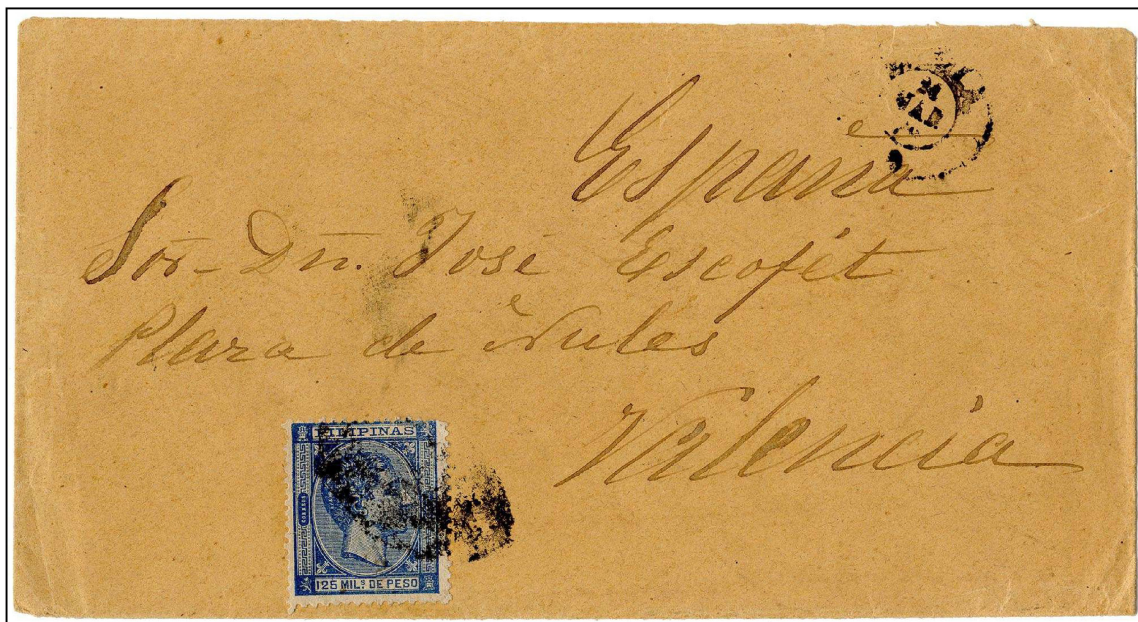 España
Sor Dn. José Escofét
Plaza de Nules
Valencia
FILIPINAS
CORREOS
125 MILS. DE PESO
MAR